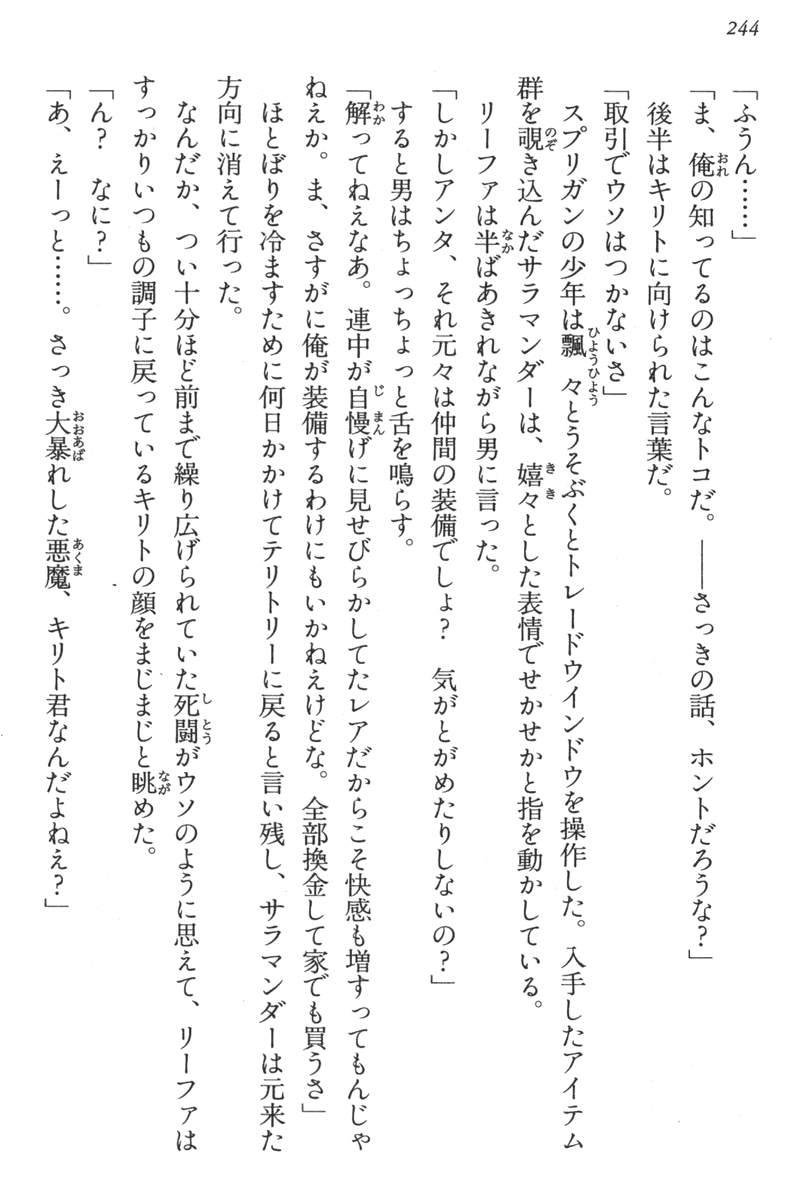 244
「ふうん……」
「ま、俺の知ってるのはこんなトコだ。――さっきの話、ホントだろうな?」
後半はキリトに向けられた言葉だ。
「取引でウソはつかないさ」
スプリガンの少年は飄々とうそぶくとトレードウインドウを操作した。入手したアイテム
群を覗き込んだサラマンダーは、嬉々とした表情でせかせかと指を動かしている。
リーファは半ばあきれながら男に言った。
「しかしアンタ、それ元々は仲間の装備でしょ? 気がとがめたりしないの?」
すると男はちょっちょっと舌を鳴らす。
「解ってねえなあ。連中が自慢げに見せびらかしてたレアだからこそ快感も増すってもんじゃ
ねえか。ま、さすがに俺が装備するわけにもいかねえけどな。全部換金して家でも買うさ」
ほとぼりを冷ますために何日かかけてテリトリーに戻ると言い残し、サラマンダーは元来た
方向に消えて行った。
なんだか、つい十分ほど前まで繰り広げられていた死闘がウソのように思えて、リーファは
すっかりいつもの調子に戻っているキリトの顔をまじまじと眺めた。
「ん? なに?」
「あ、えーっと……。さっき大暴れした悪魔、キリト君なんだよねぇ?」